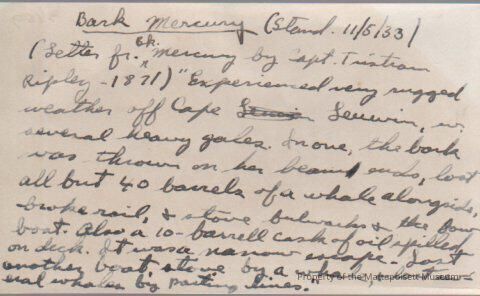 Bark Mercury (Stand. 11/5/33)
(Letter fr. Bk. Mercury by Capt. Tristram
Ripley - 1871) "Experienced very rugged
weather off Cape Leuwin, w.
several heavy gales. In one, the bark
was thrown on her beam ends, lost
all but 40 barrels of a whale alongside,
broke rail, & stove bulwarks & the bow
boat. Also a 10-barrell cask of oil spilled
on deck. It was a narrow escape. Lost
another boat, stove by a
eral whales by parting lines."
Property of the Mattapoisett Museum